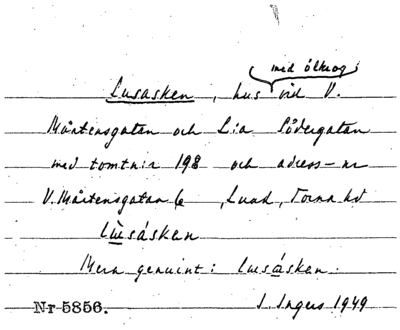 med ölkrog
Lusasken, hus vid V.
Mårtensgatan och Lia Södergatan
med tomtnir 198 och adress-nr
V. Mårtensgatan 6, Lund, Torna hd
lùsásken
Mera genuint: lusásken.
Nr 5856. I. Ingers 1949